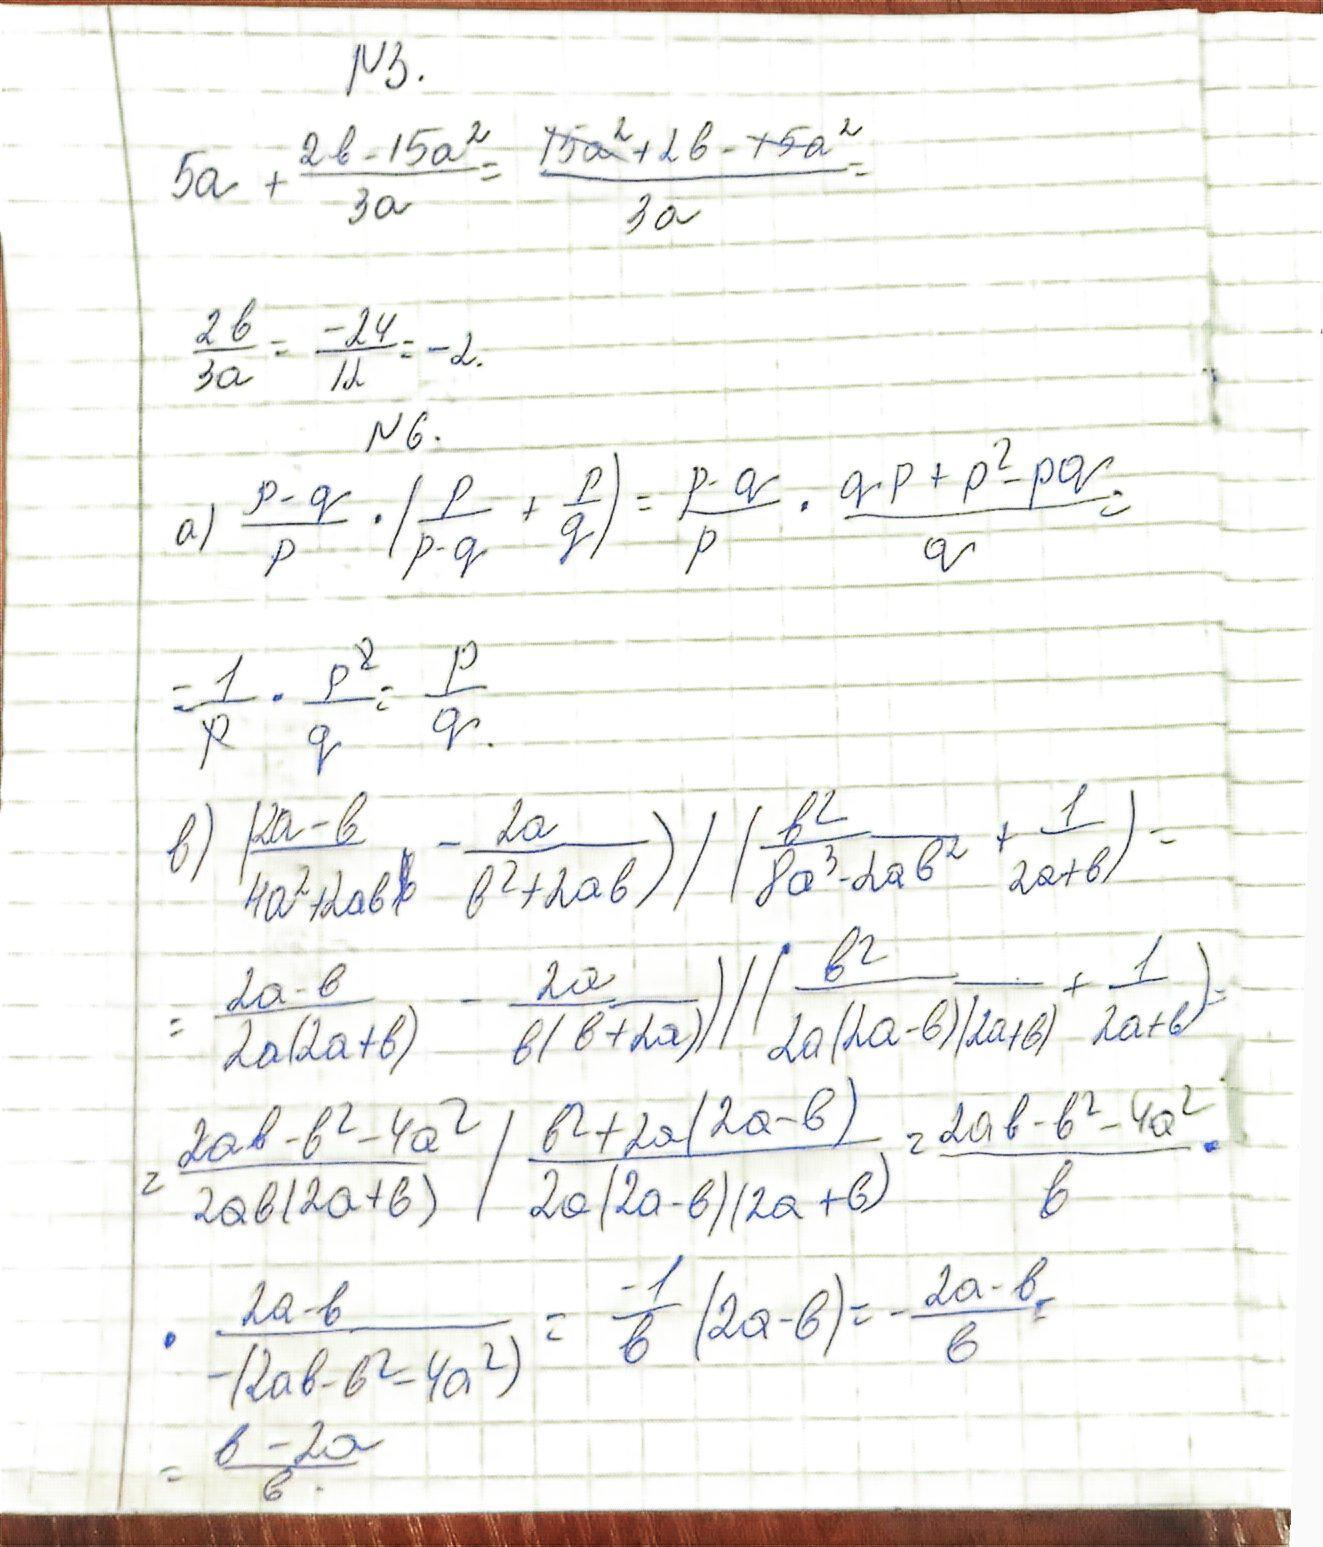 N3.
5a + (2b - 15a²)/(3a) = (15a² + 2b - 15a²)/(3a) =
(2b)/(3a) = (-24)/(12) = -2.
N6.
a) (p - q)/p · (p/(p - q) + p/q) = (p - q)/p · (qp + p² - pq)/q =
= 1/p · p²/q = p/q.
в) ((2a - b)/(4a² + 2ab) - 2a/(b² + 2ab)) / (b²/(8a³ - 2ab²) + 1/(2a + b)) =
= (2a - b)/(2a(2a + b)) - 2a/(b(b + 2a))) // (b²/(2a(2a - b)(2a + b)) + 1/(2a + b)) =
= (2ab - b² - 4a²)/(2ab(2a + b)) / (b² + 2a(2a - b))/(2a(2a - b)(2a + b)) = (2ab - b² - 4a²)/b ·
· (2a - b)/(-(2ab - b² - 4a²)) = (-1)/b (2a - b) = - (2a - b)/b =
= (b - 2a)/b.